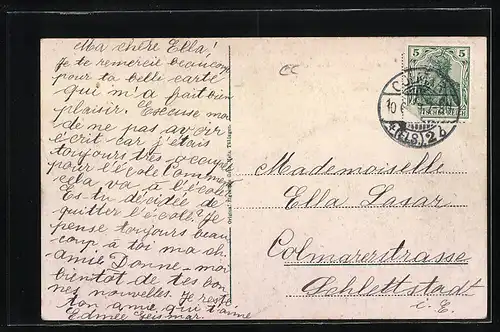 Ma chère Ella!
Je te remercie beaucoup
pour ta belle carte
qui m'a fait bien
plaisir. Excuse moi
de ne pas avoir
écrit car j'étais
toujours très occupé
pour l'école. Comment
cela va à l'école?
Es-tu décidée de
quitter l'école? Je
pense toujours beau-
coup à toi ma ch.
amie. Donne-moi
bientôt de tes bon-
nes nouvelles. Je reste
ton amie qui t'aime
Edmée Geismar.
5 5
(ELS.) 2b
Mademoiselle
Ella Lasar
Colmarerstrasse
Schlettstadt
i. E.